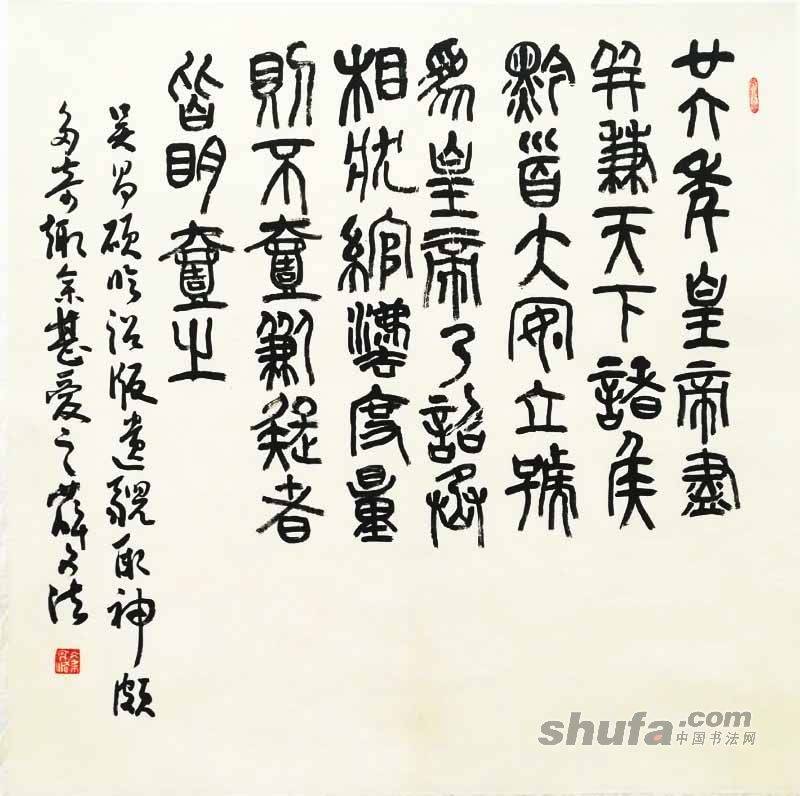 廿六年皇帝盡
并兼天下諸侯
黔首大安立號
為皇帝乃詔丞
相狀綰灋度量
則不壹歉疑者
皆明壹之
吴昌碩臨詔版遺貌取神頗
多奇趣余甚愛之薛
shufa.com
中国书法网